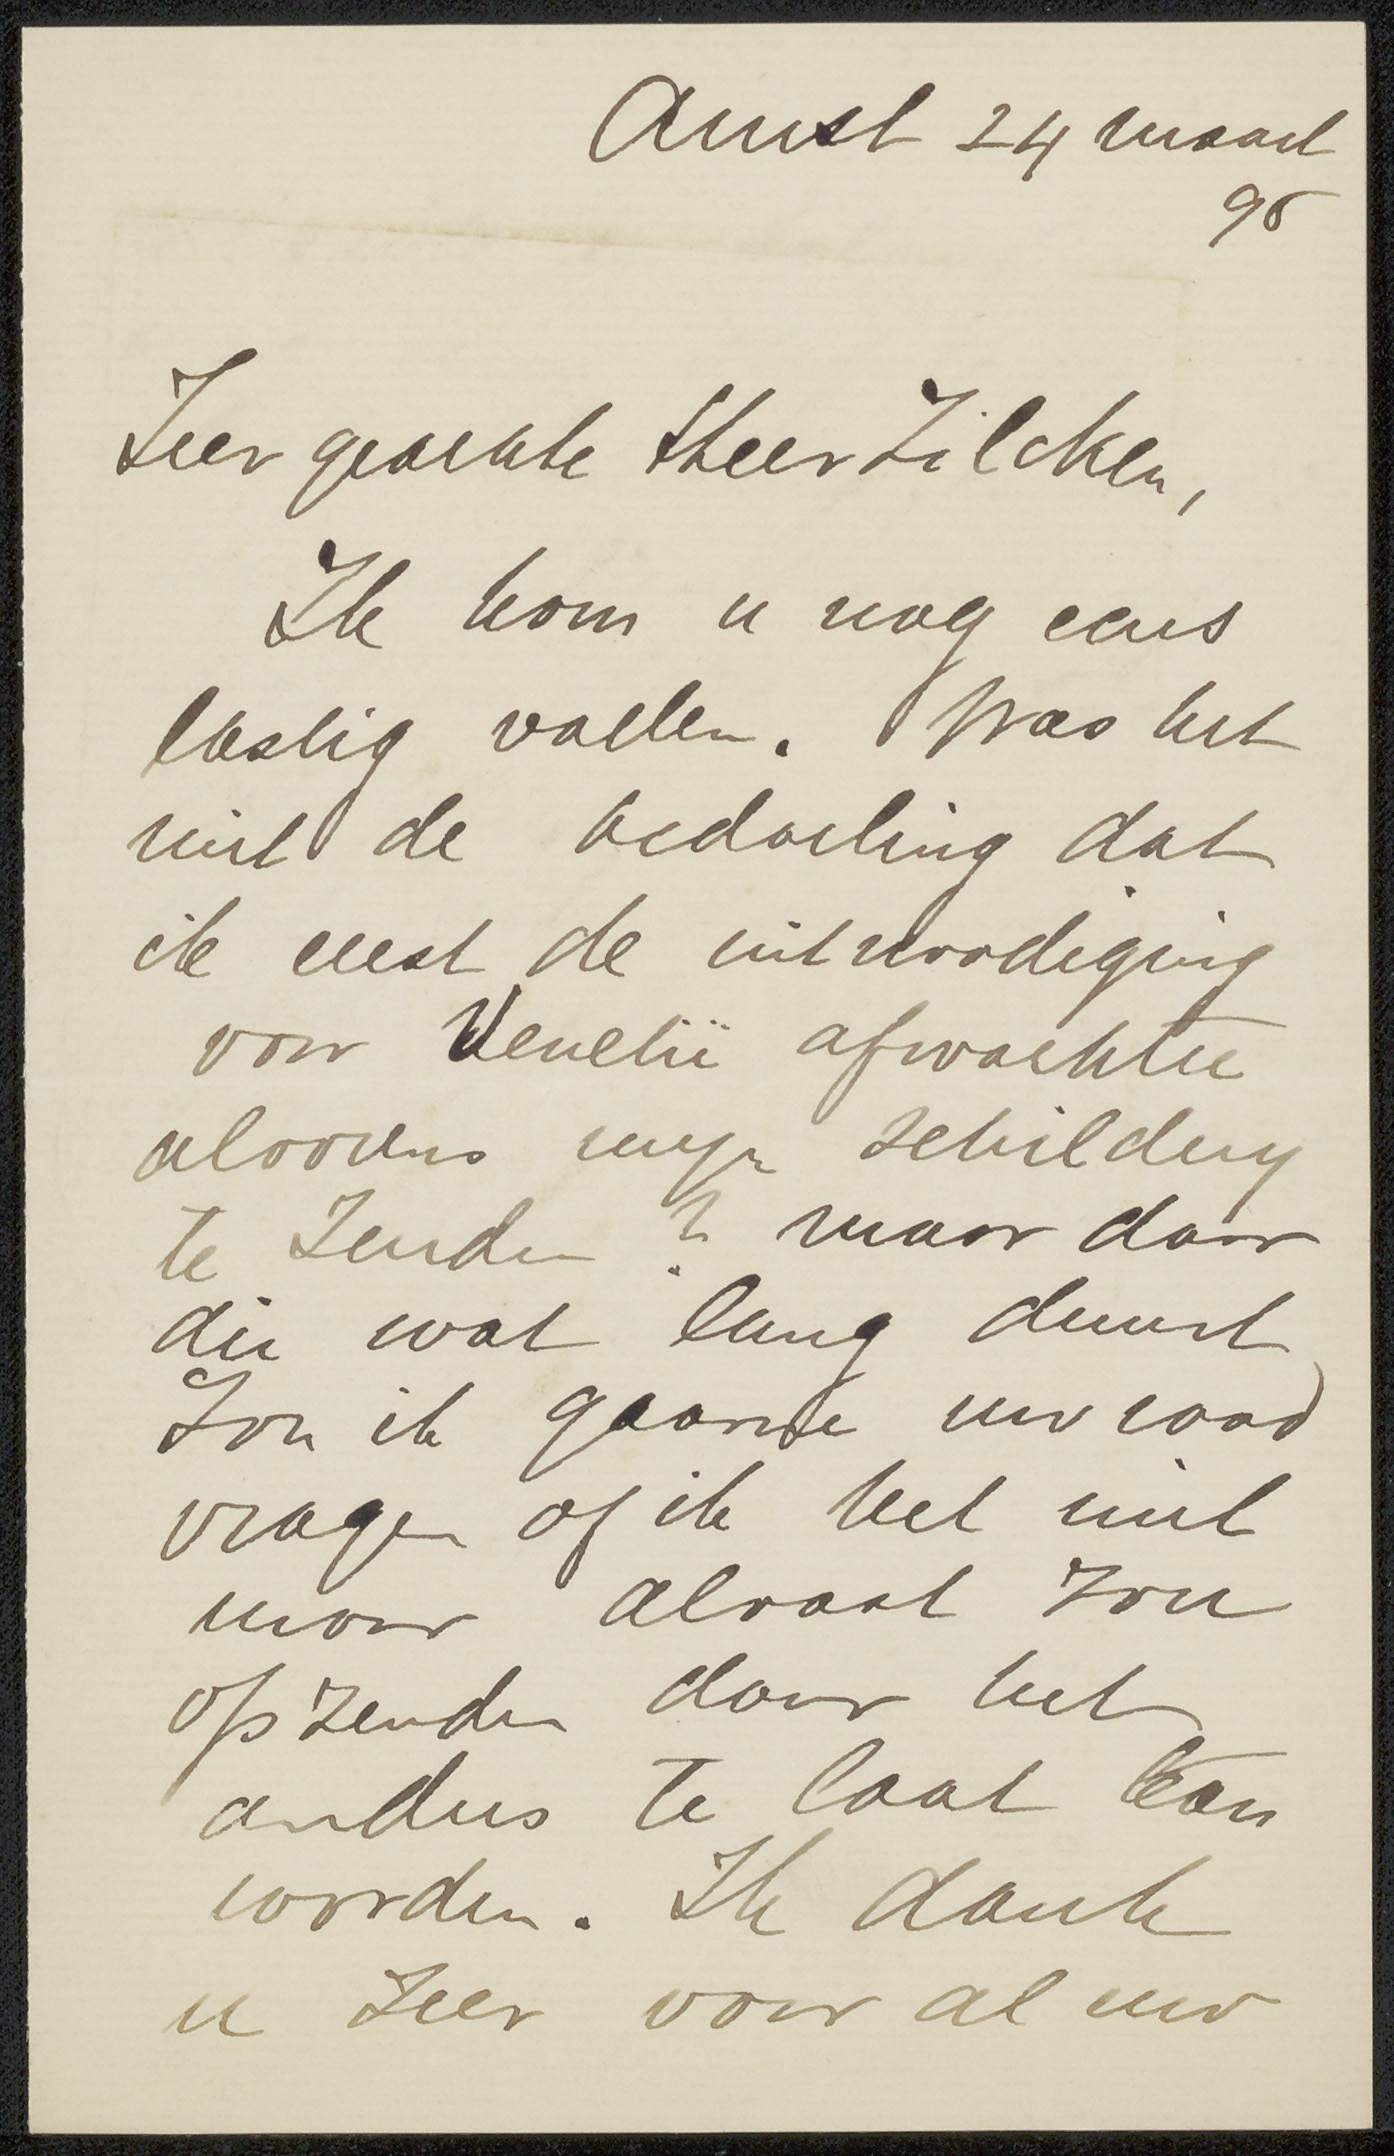 Amst 24 maart
95
Zeer geachte Heer Zilcken,
Ik kom u nog eens
lastig vallen. Was het
niet de bedoeling dat
ik eerst de uitnoodiging
voor Venetië afwachtte
alvorens mijn schilderij
te zenden? maar daar
die wat lang duurt
zou ik gaarne uw raad
vragen of ik het niet
maar alvast zou
opzenden daar het
anders te laat kan
worden. Ik dank
u zeer voor al uw